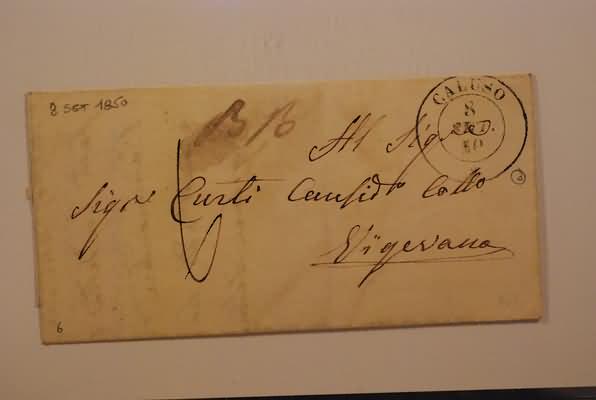 8 SET 1850
CALUSO
8
SET.
50
Al Sigr
Sigre Curti Causid Collo
Vigevano
6